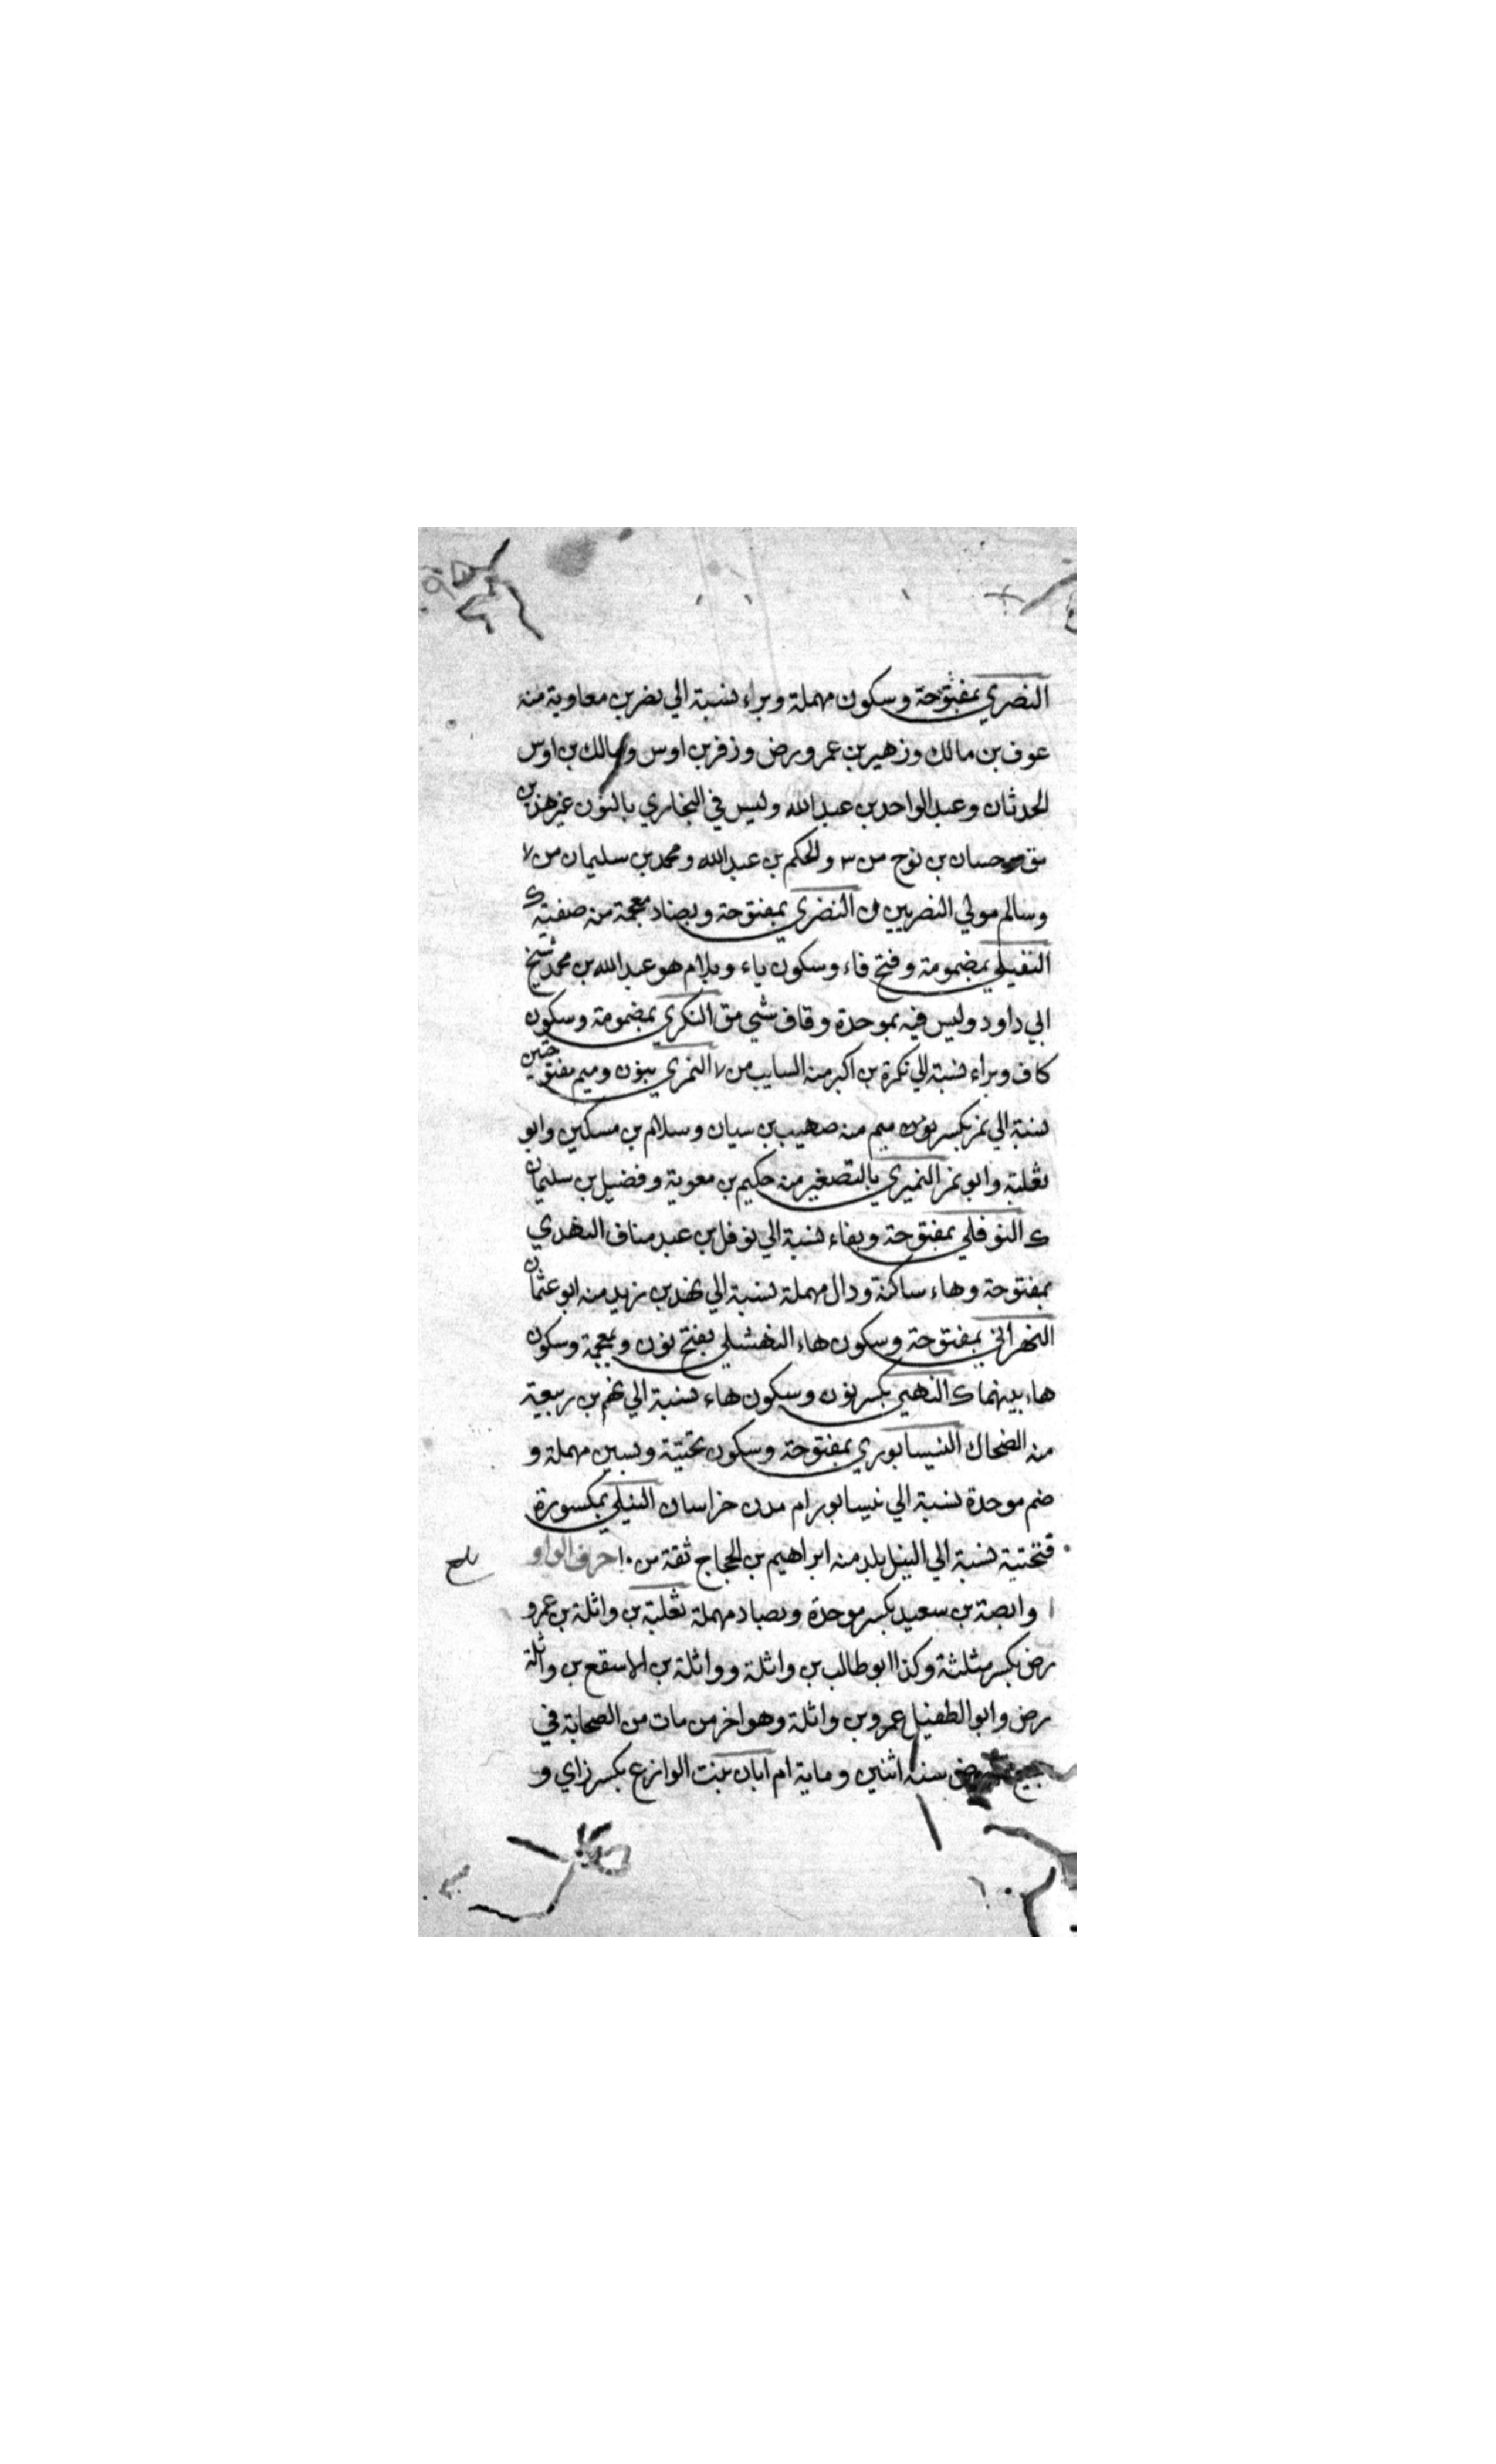 النصري بمفتوحة وسكون مهملة وبراء نسبة الي نصر بن معاوية منه
عوف بن مالك وزهير بن عمرو رض وزفر بن اوس ومالك بن اوس
الحدثان وعبد الواحد بن عبد الله وليس في البخاري بالنون غير هذين
مق حسان بن نوح من ٣ والحكم بن عبد الله ومحمد بن سليمان من ٧
وسالم مولي النصريين ن النضري بمفتوحة وبضاد معجمة منه صفية ك
النفيلي بمضمومة وفتح فاء وسكون ياء وبلام هو عبد الله بن محمد شيخ
ابي داود وليس فيه بموحدة وقاف شي مق النكري بمضمومة وسكون
كاف وبراء نسبة الي نكرة بن اكبر منه السايب من ٧ النمري بنون وميم مفتوحتين
نسبة الي نمر بكسر نون ميم منه صهيب بن سيان وسلام بن مسكين وابو
ثعلبة وابو نمر النميري بالتصغير منه حكيم بن معوية وفضيل بن سليمان
ك النوفلي بمفتوحة وبفاء نسبة الي نوفل بن عبد مناف النهدي
بمفتوحة وهاء ساكنة ودال مهملة نسبة الي نهد بن زيد منه ابو عثمان
النهراني بمفتوحة وسكون هاء النهشلي بفتح نون وبمعجمة وسكون
هاء بينهما ك النهمي بكسر نون وسكون هاء نسبة الي نهم بن ربيعة
منه الضحاك النيسابوري بمفتوحة وسكون تحتية وبسين مهملة و
ضم موحدة نسبة الي نيسابور ام مدن خراسان النيلي بمكسورة
فتحتية نسبة الي النيل بلد منه ابراهيم بن الحجاج ثقة من ١٠ حرف الواو
وابصة بن سعيد بكسر موحدة وبصاد مهملة ثعلبة بن واثلة بن عمرو
رض بكسر مثلثة وكذا ابو طالب بن واثلة وواثلة بن الاسقع بن واثلة
رض وابو الطفيل عمرو بن واثلة وهو اخر من مات من الصحابة في
جميع رض سنة اثنين وماية ام ابان بنت الوازع بكسر زاي و